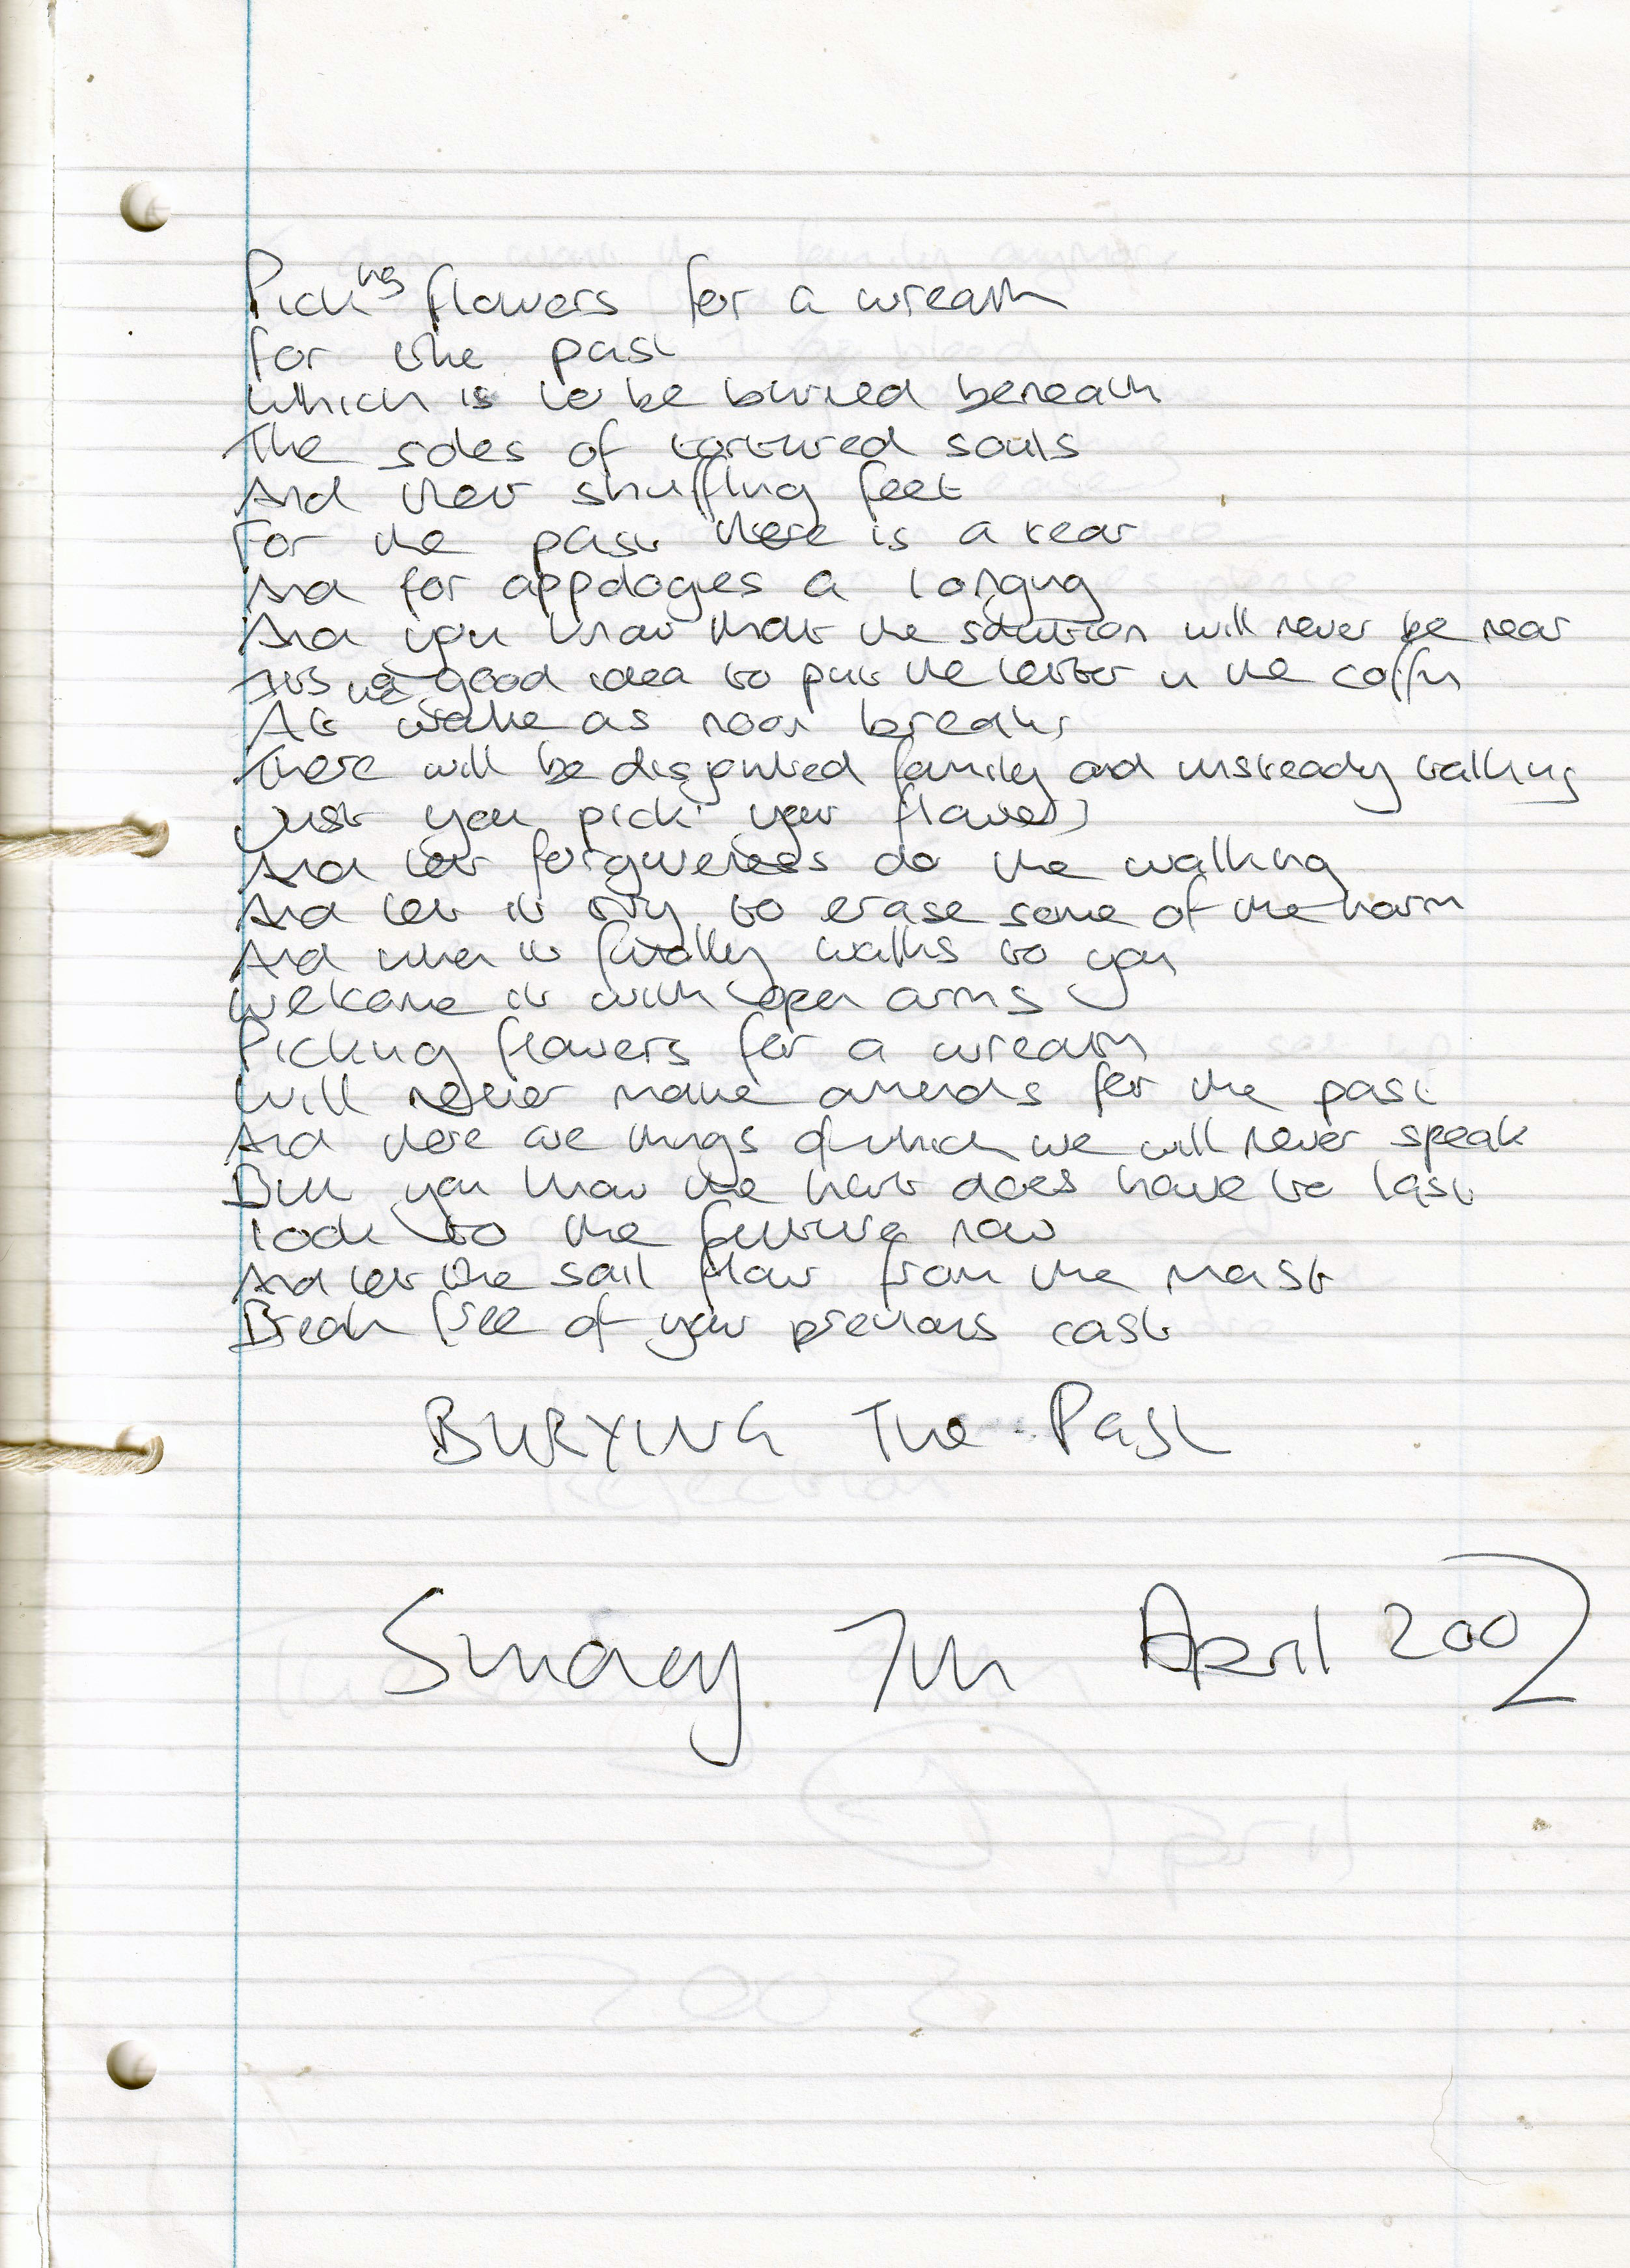 Picking flowers for a wreath
for the past
Which is to be buried beneath
The soles of tortured souls
And their shuffling feet
For the past there is a tear
And for appologies a longing
And you know that the solution will never be near
Its a good idea to put the letter in the coffin
At the wake as noon breaks
There will be disjointed family and unsteady talking
Just you pick your flowers
And let forgiveness do the walking
And let it try to erase some of the harm
And when it finally walks to you
Welcome it with open arms
Picking flowers for a wreath
Will never make amends for the past
And there are things of which we will never speak
But you know the hurt does have to last
Look to the future now
And let the sail flow from the mast
Break free of your previous cast
BURYING The Past
Sunday 7th April 2002